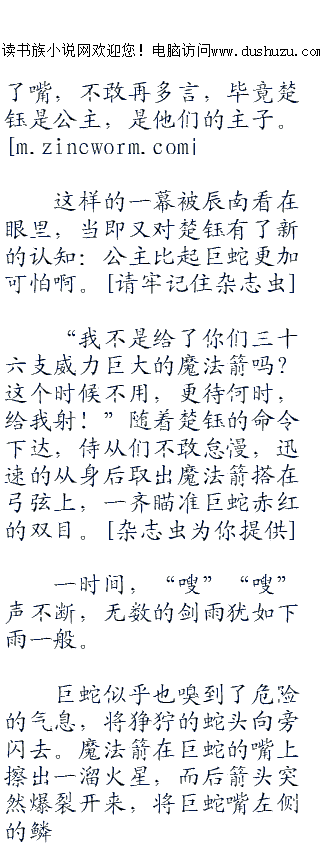 读书族小说网欢迎您！电脑访问www.dushuzu.com
了嘴，不敢再多言，毕竟楚
钰是公主，是他们的主子。
[m.zincworm.com|
这样的一幕被辰南看在
眼里，当即又对楚钰有了新
的认知：公主比起巨蛇更加
可怕啊。[请牢记住杂志虫]
“我不是给了你们三十
六支威力巨大的魔法箭吗？
这个时候不用，更待何时，
给我射！”随着楚钰的命令
下达，侍从们不敢怠慢，迅
速的从身后取出魔法箭搭在
弓弦上，一齐瞄准巨蛇赤红
的双目。[杂志虫为你提供]
一时间，“嗖”“嗖”
声不断，无数的剑雨犹如下
雨一般。
巨蛇似乎也嗅到了危险
的气息，将狰狞的蛇头向旁
闪去。魔法箭在巨蛇的嘴上
擦出一溜火星，而后箭头突
然爆裂开来，将巨蛇嘴左侧
的鳞